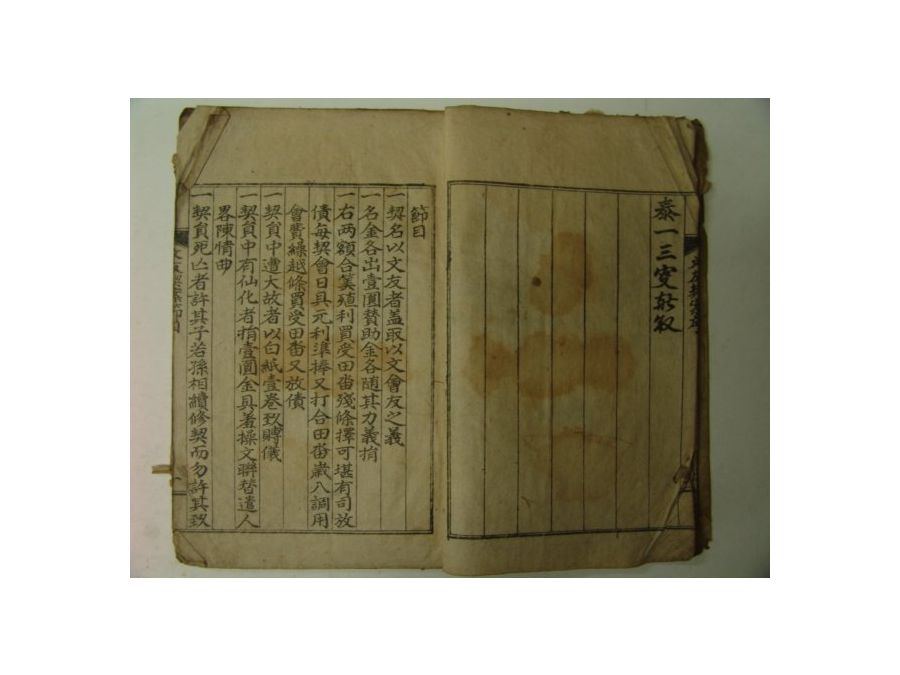 泰一三變新敍
節目
一契名以文友者盖取以文會友之義
一名金各出壹圓賛助金各隨其力義捐
一右両額合筭殖利買受田畓殘條擇可堪有司放
債每契會日具元利準捧又打合田畓歲入調用
會費繰越條買受田畓又放債
一契員中遭大故者以白紙壹卷致賻儀
一契員中有仙化者捐壹圓金具羞操文聯替遣人
畧陳情曲
一契員死亡者許其子若孫相續修契而勿許其致